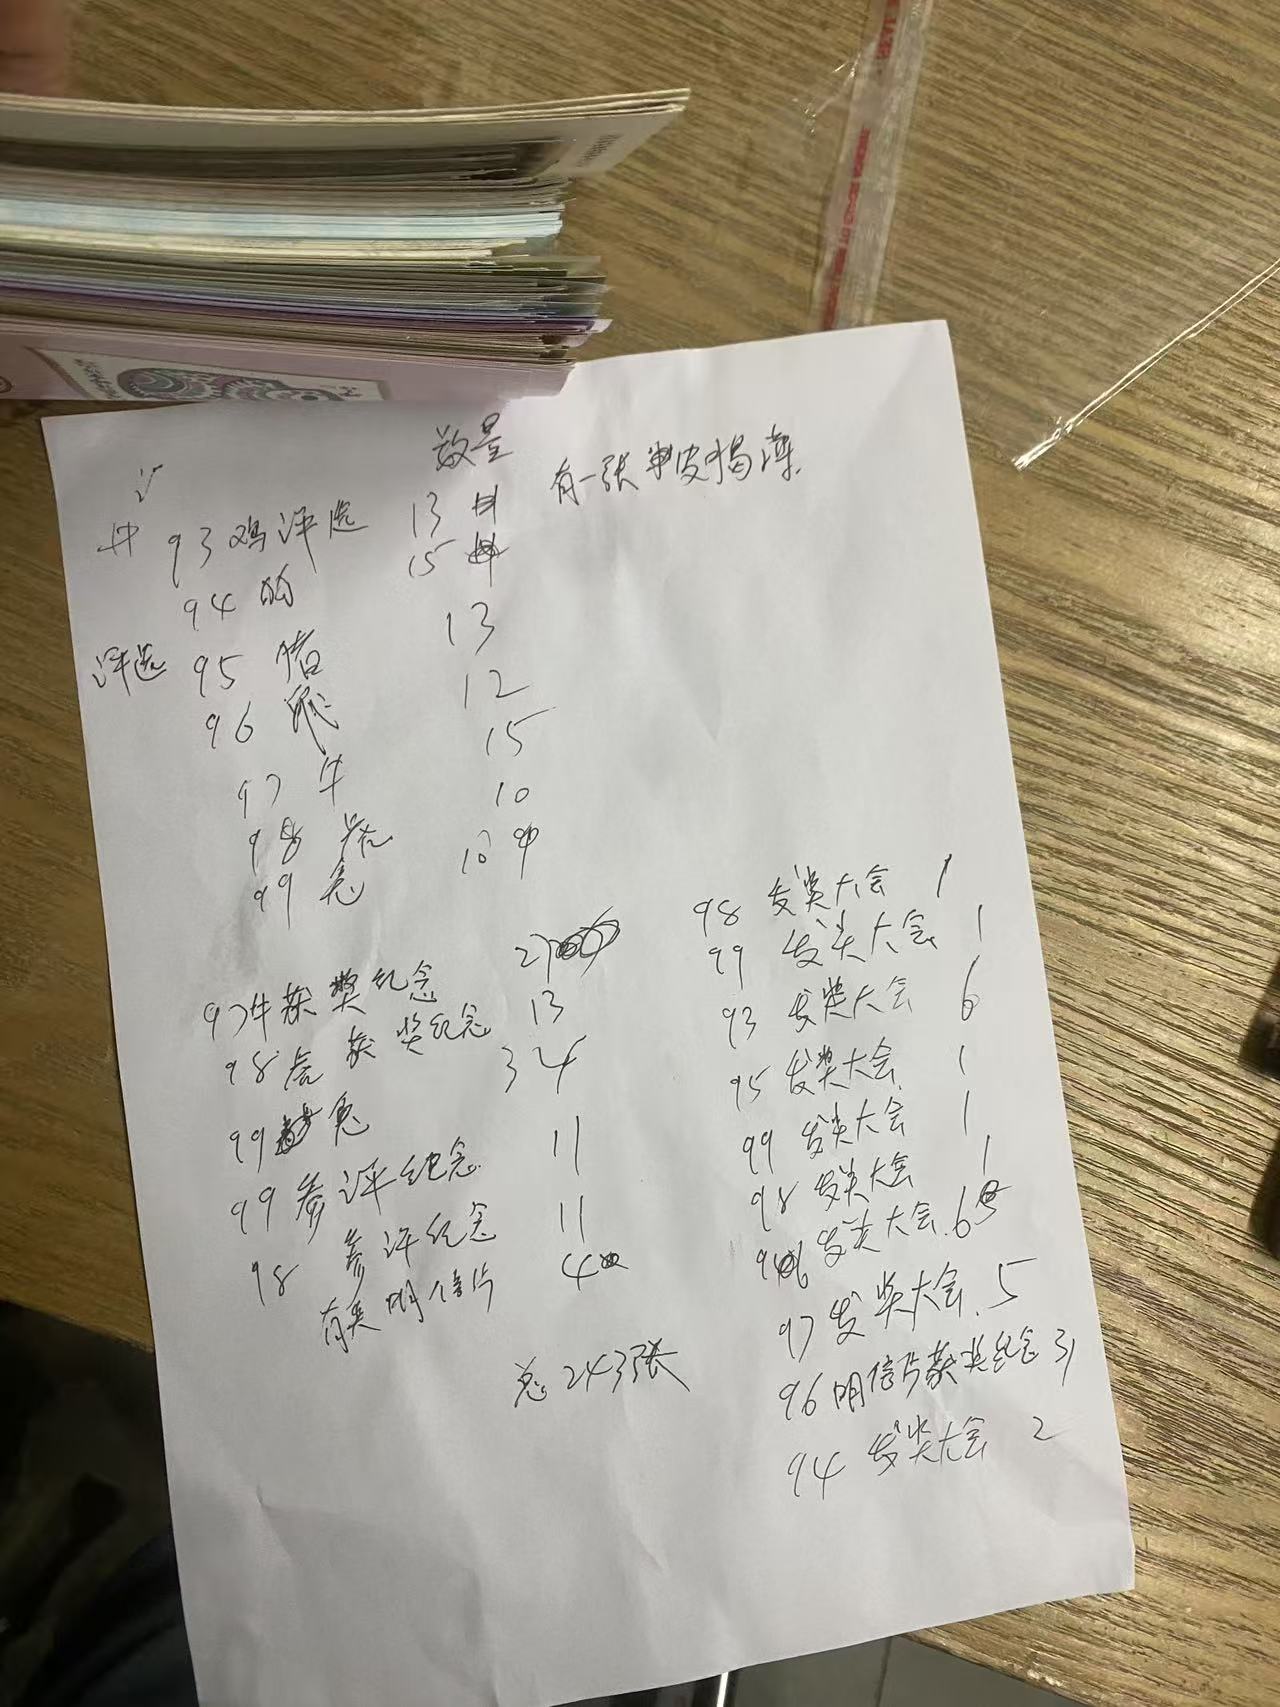 数量
有一张单皮揭薄.
93 鸡评选 13
94 狗 15
评选 95 猪 13
96 鼠 12
97 牛 15
98 虎 10
99 兔 10
97牛获奖纪念 27
98虎获奖纪念 13
99 兔 34
99 参评纪念 11
98 参评纪念 11
有奖明信片 4
总 243张
98 发奖大会 1
99 发奖大会 1
93 发奖大会 6
95 发奖大会 1
99 发奖大会 1
98 发奖大会 1
96 发奖大会. 6
97 发奖大会. 5
96 明信片获奖纪念 31
94 发奖大会 2